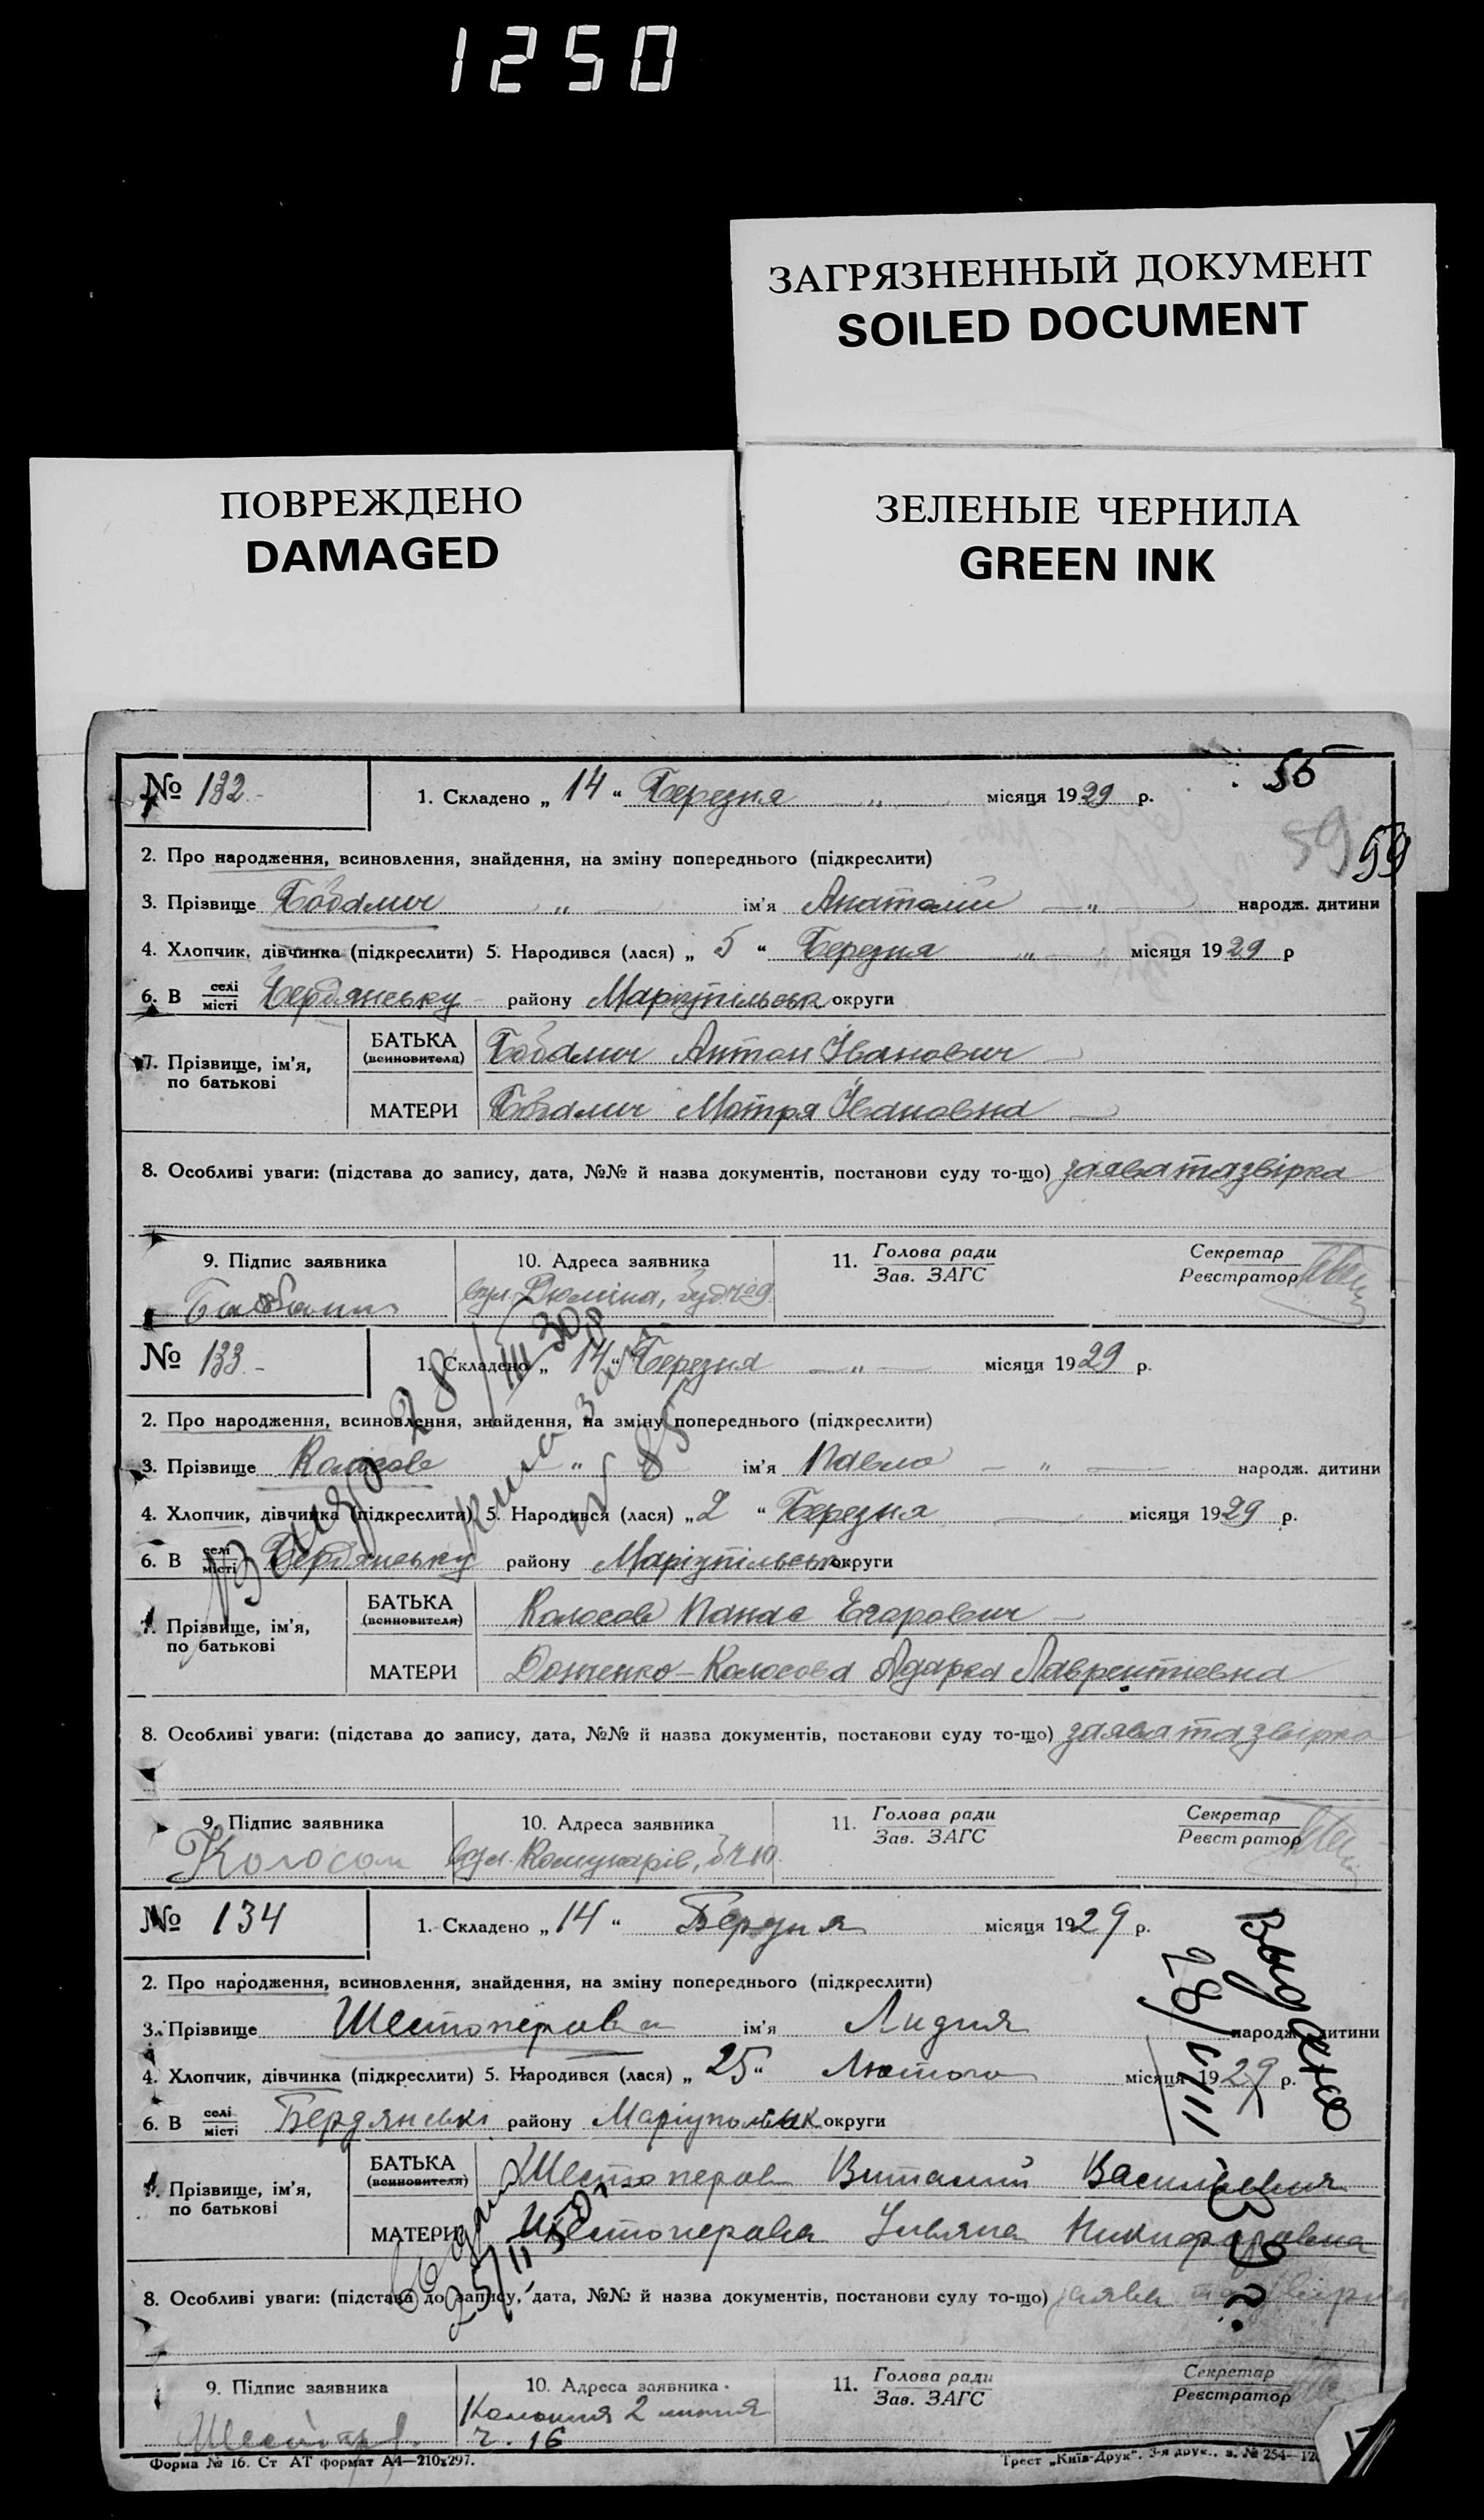 1250
ЗАГРЯЗНЕННЫЙ ДОКУМЕНТ
SOILED DOCUMENT
ПОВРЕЖДЕНО
DAMAGED
ЗЕЛЕНЫЕ ЧЕРНИЛА
GREEN INK
55
59
59
№ 132
1. Складено „ 14 “ Березня — „ — місяця 1929 р.
2. Про народження, всиновлення, знайдення, на зміну попереднього (підкреслити)
3. Прізвище — „ — ім'я Анатолій — „ — народж. дитини
4. Хлопчик, дівчинка (підкреслити) 5. Народився (лася) „ 5 “ Березня — „ — місяця 1929 р
6. В селі місті Бердянську району Маріупільськ округи
7. Прізвище, ім'я, по батькові
БАТЬКА (всиновителя) Антон Іванович
МАТЕРИ Мотря Івановна
8. Особливі уваги: (підстава до запису, дата, №№ й назва документів, постанови суду то-що) заява та звірка
9. Підпис заявника
10. Адреса заявника
вул. Дюміна, буд. № 9
11. Голова ради Зав. ЗАГС
Секретар Реєстратор
№ 133
1. Складено „ 14 “ Березня — „ — місяця 1929 р.
2. Про народження, всиновлення, знайдення, на зміну попереднього (підкреслити)
3. Прізвище Колосов — „ — ім'я Павло — „ — народж. дитини
4. Хлопчик, дівчинка (підкреслити) 5. Народився (лася) „ 2 “ Березня — місяця 1929 р.
6. В селі місті Бердянську району Маріупільськ округи
7. Прізвище, ім'я, по батькові
БАТЬКА (всиновителя) Колосов Панас Егорович
МАТЕРИ Донченко-Колосова Одарка Лаврентіевна
8. Особливі уваги: (підстава до запису, дата, №№ й назва документів, постанови суду то-що) заява та звірка
9. Підпис заявника
Колосов
10. Адреса заявника
вул. Комунарів, б. Ч 10
11. Голова ради Зав. ЗАГС
Секретар Реєстратор
28/III 30 р
№ 85
№ 134
1. Складено „ 14 “ місяця 1929 р.
2. Про народження, всиновлення, знайдення, на зміну попереднього (підкреслити)
3. Прізвище Шестоперова ім'я Лидия народж. дитини
4. Хлопчик, дівчинка (підкреслити) 5. Народився (лася) „ 25 “ Лютого місяця 1929 р.
6. В селі місті Бердянські району Маріупольск округи
7. Прізвище, ім'я, по батькові
БАТЬКА (всиновителя) Шестоперов Виталий Васильевич
МАТЕРИ Шестоперова Ульяна Никифоровна
8. Особливі уваги: (підстава до запису, дата, №№ й назва документів, постанови суду то-що) заява та звірка
9. Підпис заявника
10. Адреса заявника
Колония 2 линия
ч. 16
11. Голова ради Зав. ЗАГС
Секретар Реєстратор
Выдано
Форма № 16. Ст АТ формат А4—210х297.
Трест „Київ-Друк“. 3-я друк., з. № 254—